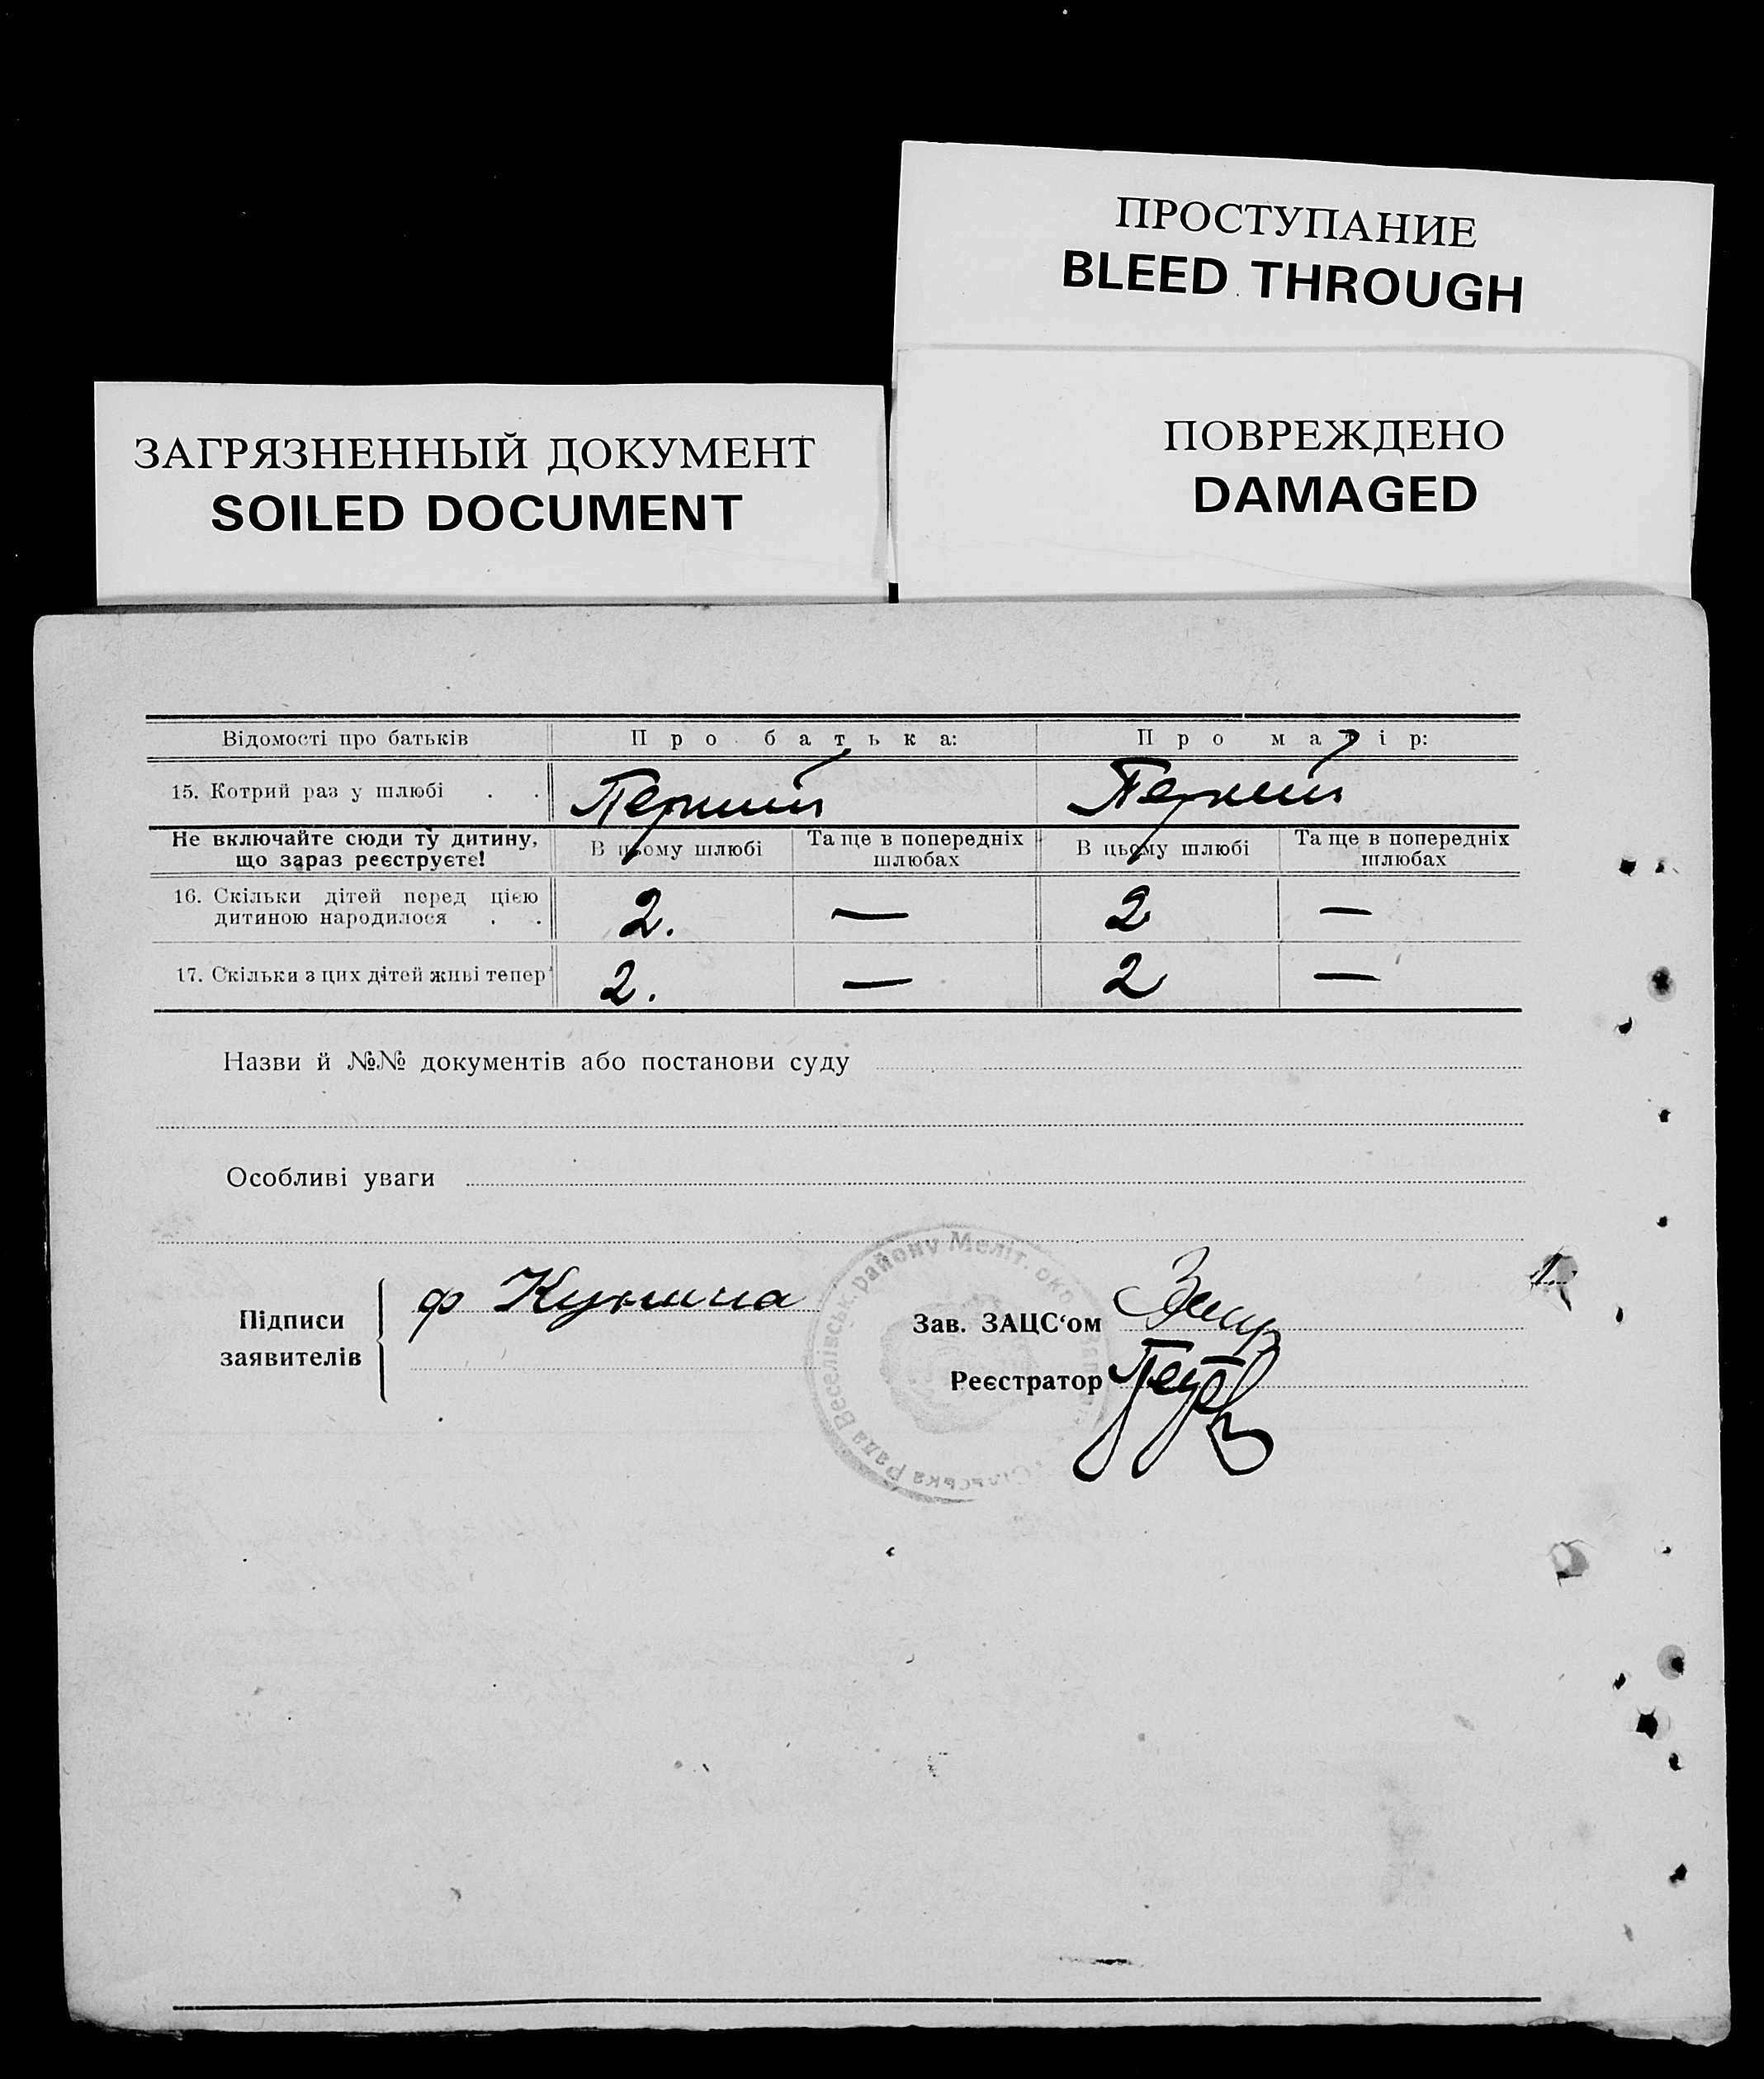 ПРОСТУПАНИЕ
BLEED THROUGH
ПОВРЕЖДЕНО
DAMAGED
ЗАГРЯЗНЕННЫЙ ДОКУМЕНТ
SOILED DOCUMENT
Відомості про батьків Про батька: Про матір:
15. Котрий раз у шлюбі . . Перший Перший
Не включайте сюди ту дитину, що зараз реєструєте! В цьому шлюбі Та ще в попередніх шлюбах В цьому шлюбі Та ще в попередніх шлюбах
16. Скільки дітей перед цією
дитиною народилося . . 2. — 2 —
17. Скільки з цих дітей живі тепер 2. — 2 —
Назви й №№ документів або постанови суду
Особливі уваги
Підписи заявителів ф
Зав. ЗАЦС‘ом
Реєстратор
Сільська Рада Веселівськ. району Меліт. окр